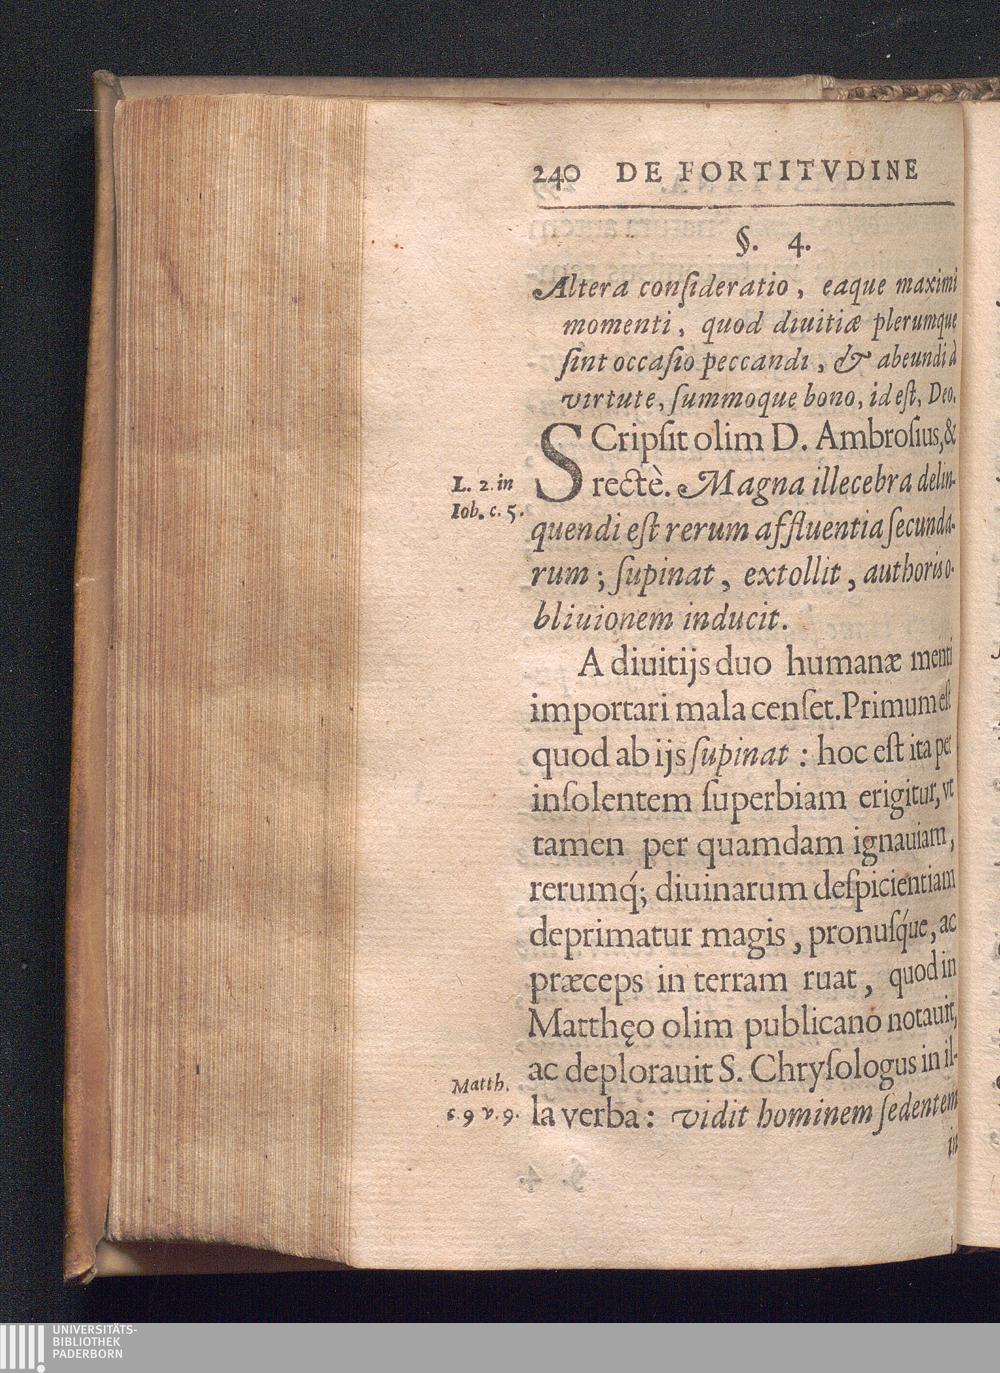 240 DE FORTITVDINE
§. 4.
Altera conſideratio, eaque maximi
momenti, quod diuitiæ plerumque
ſint occaſio peccandi, & abeundi à
virtute, ſummoque bono, id eſt, Deo.
SCripſit olim D. Ambroſius, &
L. 2. in
Iob. c. 5.
rectè. Magna illecebra delin-
quendi eſt rerum affluentia ſecunda-
rum; ſupinat, extollit, authoris o-
bliuionem inducit.
A diuitijs duo humanæ menti
importari mala cenſet. Primum eſt
quod ab ijs ſupinat: hoc eſt ita per
inſolentem ſuperbiam erigitur, vt
tamen per quamdam ignauiam,
rerumq́; diuinarum deſpicientiam
deprimatur magis, pronuſq́ue, ac
præceps in terram ruat, quod in
Matthęo olim publicano notauit,
ac deplorauit S. Chryſologus in il-
Matth.
c. 9 v. 9.
la verba: vidit hominem ſedentem
in
UNIVERSITÄTS-
BIBLIOTHEK
PADERBORN